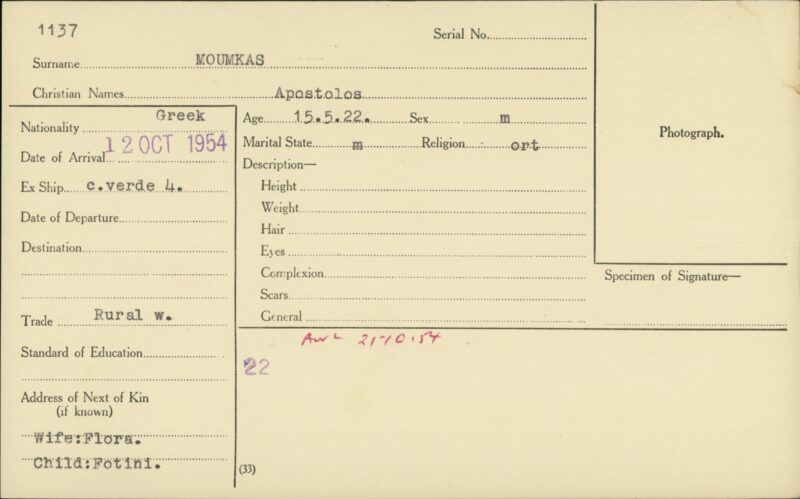 1137
Serial No.
Surname MOUMKAS
Christian Names Apostolos
Nationality Greek
Date of Arrival 12 OCT 1954
Ex Ship c.verde 4.
Date of Departure
Destination
Trade Rural w.
Standard of Education
Address of Next of Kin
(if known)
Wife:Flora.
Child:Fotini.
Age 15.5.22. Sex m
Marital State m Religion ort
Description—
Height
Weight
Hair
Eyes
Complexion
Scars
General
AWL 21-10-54
22
(33)
Photograph.
Specimen of Signature—